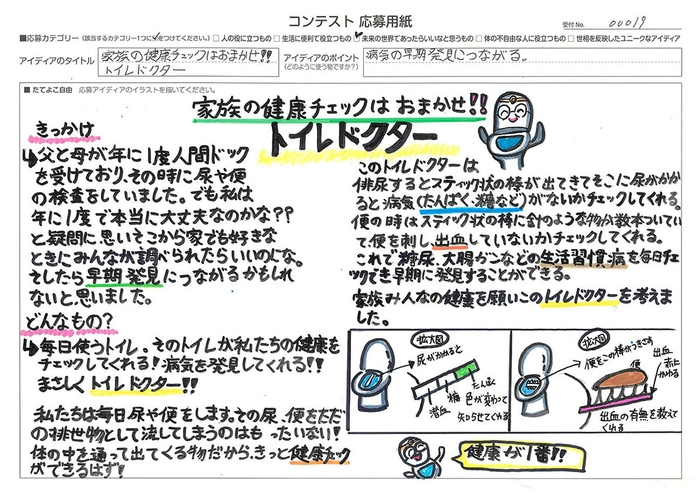 コンテスト 応募用紙
受付No. 00019
■応募カテゴリー（該当するカテゴリー1つに✓をつけてください。） □ 人の役に立つもの □ 生活に便利で役立つもの ☑ 未来の世界であったらいいなと思うもの □ 体の不自由な人に役立つもの □ 世相を反映したユニークなアイディア
アイディアのタイトル
家族の健康チェックはおまかせ!!
トイレドクター
アイディアのポイント
（どのように使う物ですか？）
病気の早期発見につながる。
■ たてよこ自由 応募アイディアのイラストを描いてください。
家族の健康チェックは おまかせ!!
トイレドクター
きっかけ
↳父と母が年に1度人間ドック
を受けており、その時に尿や便
の検査をしていました。でも私は
年に1度で本当に大丈夫なのかな??
と疑問に思いそこから家でも好きな
ときにみんなが調べられたらいいのにな。
そしたら早期発見につながるかもしれ
ないと思いました。
どんなもの?
↳毎日使うトイレ。そのトイレが私たちの健康を
チェックしてくれる!病気を発見してくれる!!
まさしくトイレドクター!!
私たちは毎日尿や便をします。その尿、便をただ
の排世物として流してしまうのはもったいない!
体の中を通って出てくる物だから、きっと健康チェック
ができるはず!
このトイレドクターは
俳尿するとスティック状の棒が出てきてそこに尿がかか
ると病気(たんぱく、糖など)がないかチェックしてくれる。
便の時はスティック状の棒に針のような物が数本ついてい
て便を刺し、出血していないかチェックしてくれる。
これで糖尿、大腸ガンなどの生活習慣病を毎日チェ
ックでき早期に発見することができる。
家族みんなの健康を願いこのトイレドクターを考えま
した。
拡大図
尿がかかると
たんぱく
糖
潜血
色が変わって
知らせてくれる
拡大図
便をこの棒がつきさす
便
出血
赤に
かわる
出血の有無を教えて
くれる
健康が1番!!